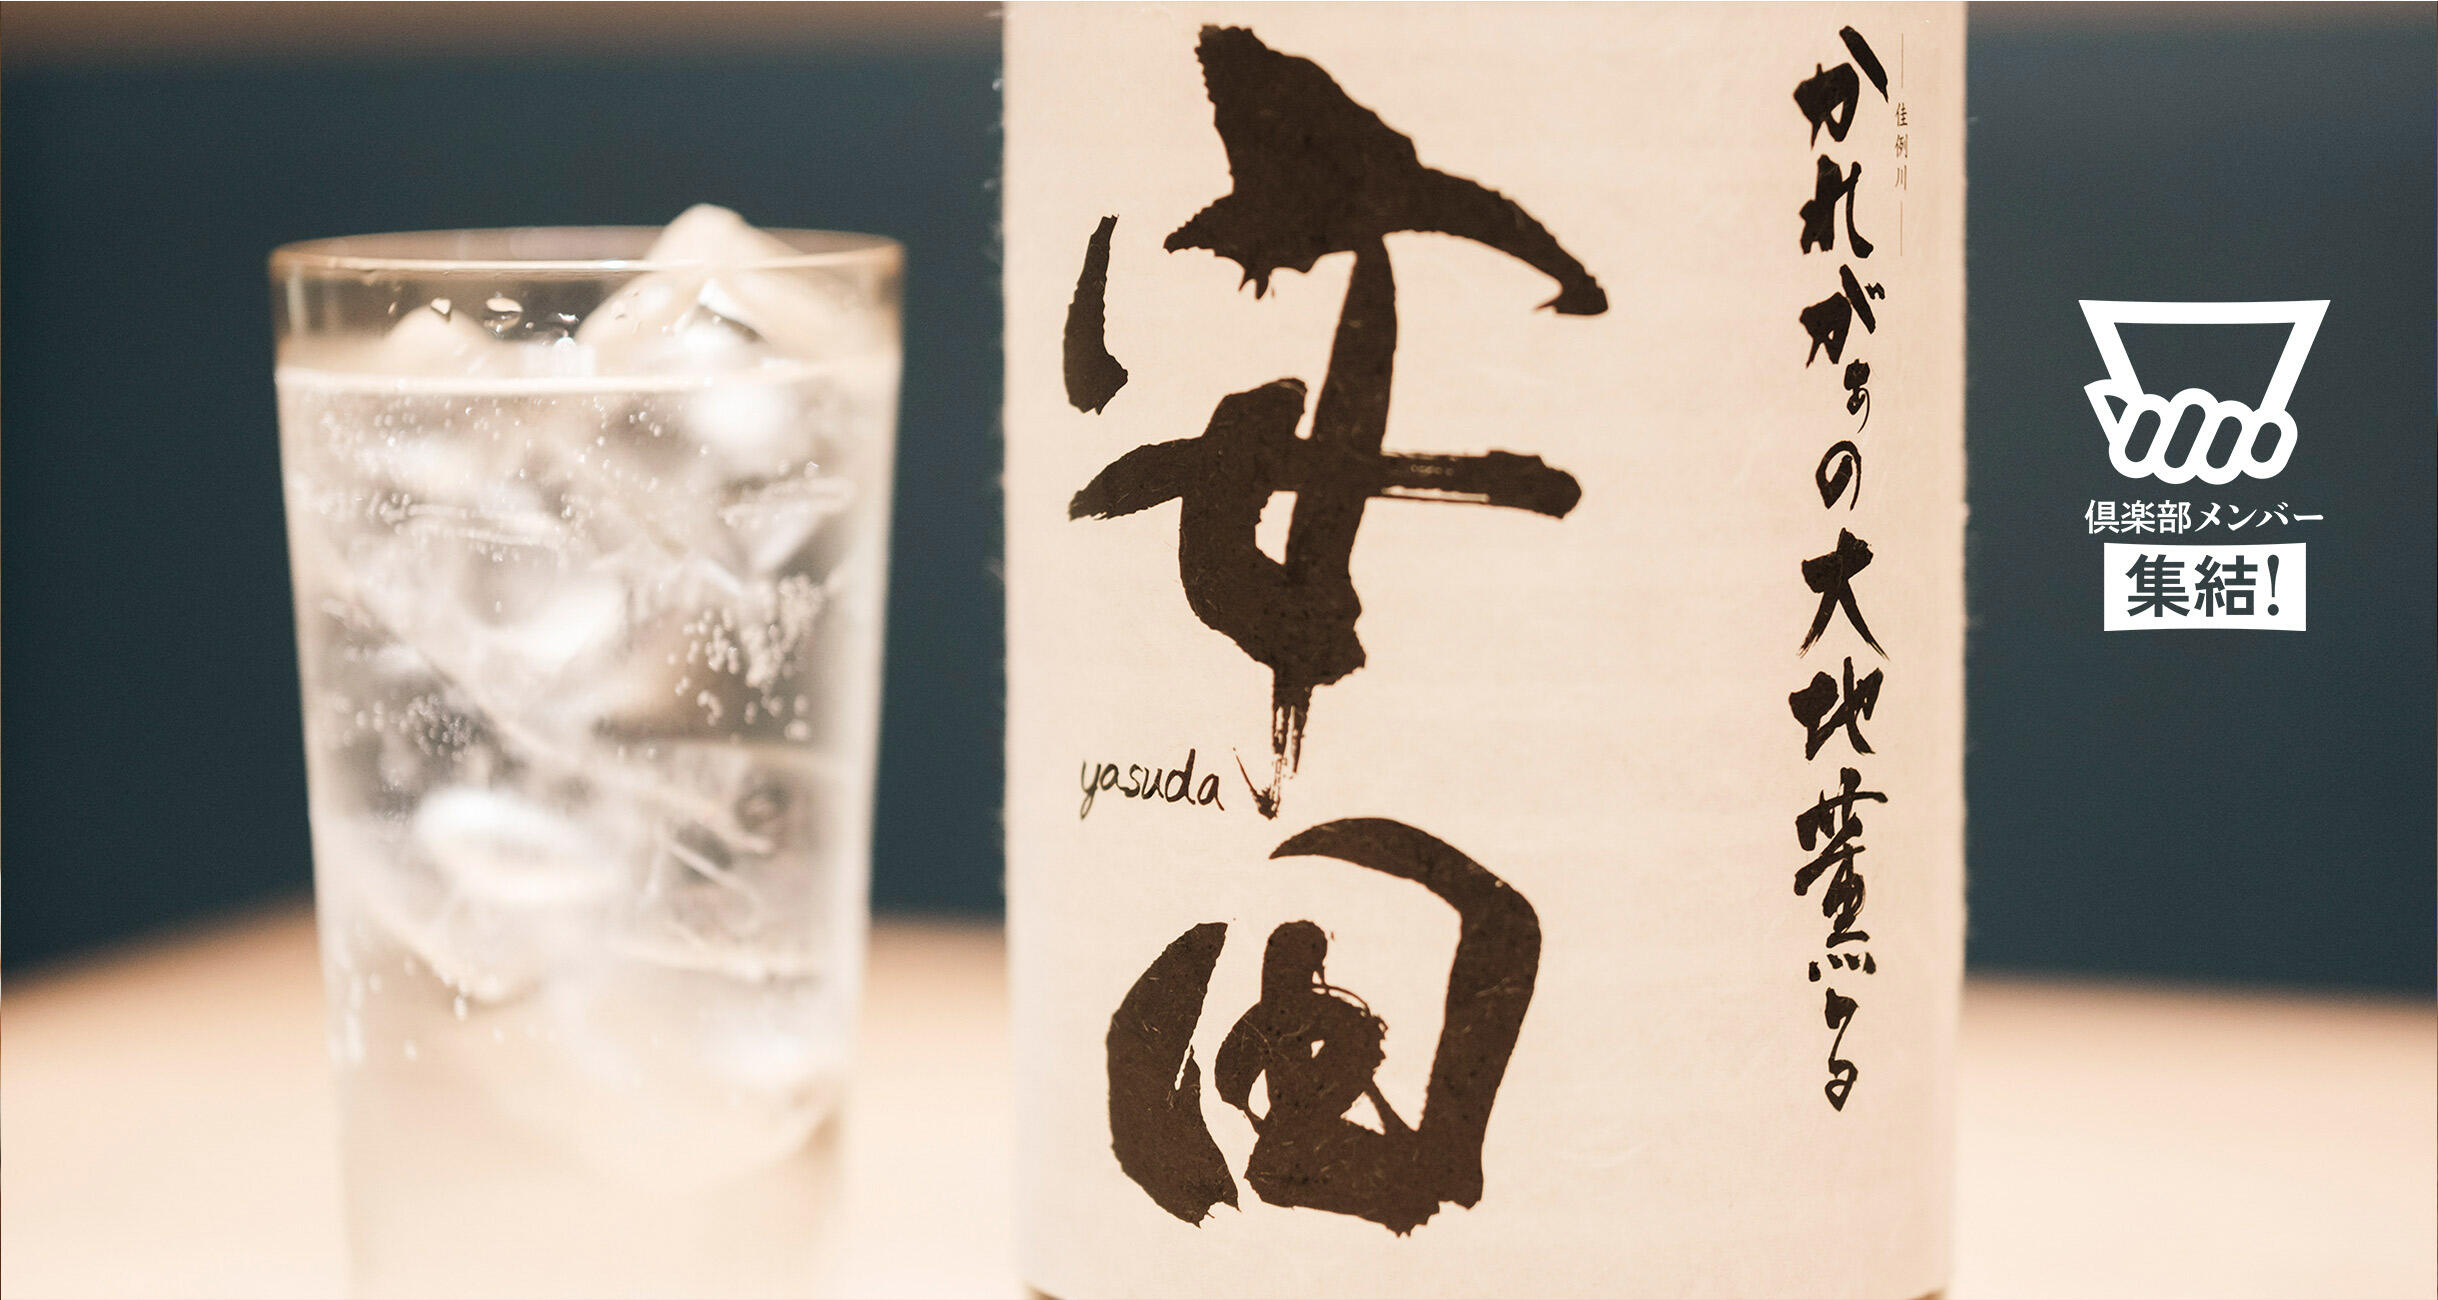 佳例川
かれがぁの大地薫る
安田
yasuda
倶楽部メンバー
集結!